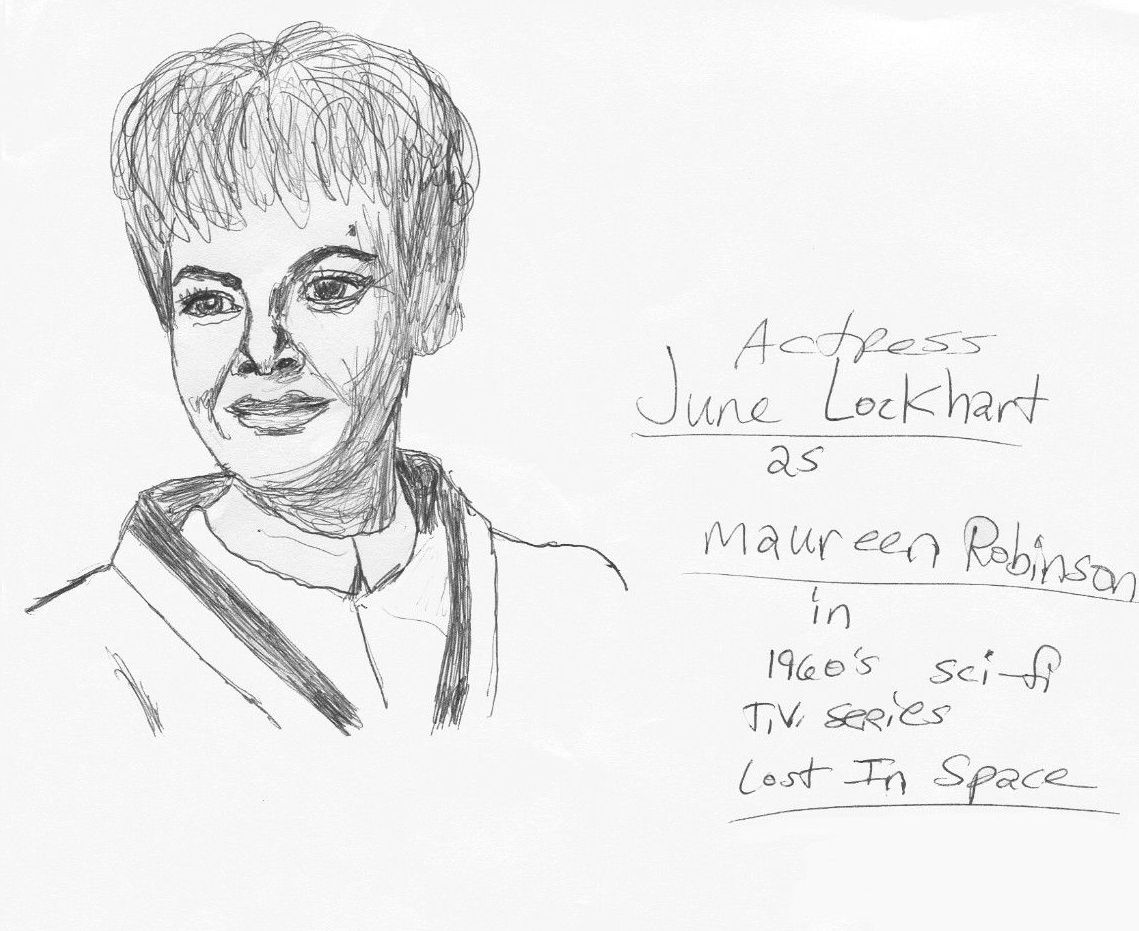 Actress
June Lockhart
as
Maureen Robinson
in
1960's sci-fi
T.V. series
Lost In Space